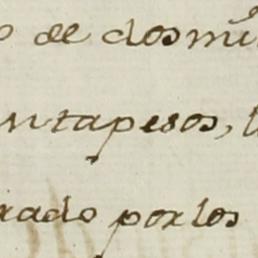 o de dosmil
entapesos, l
rado porlos